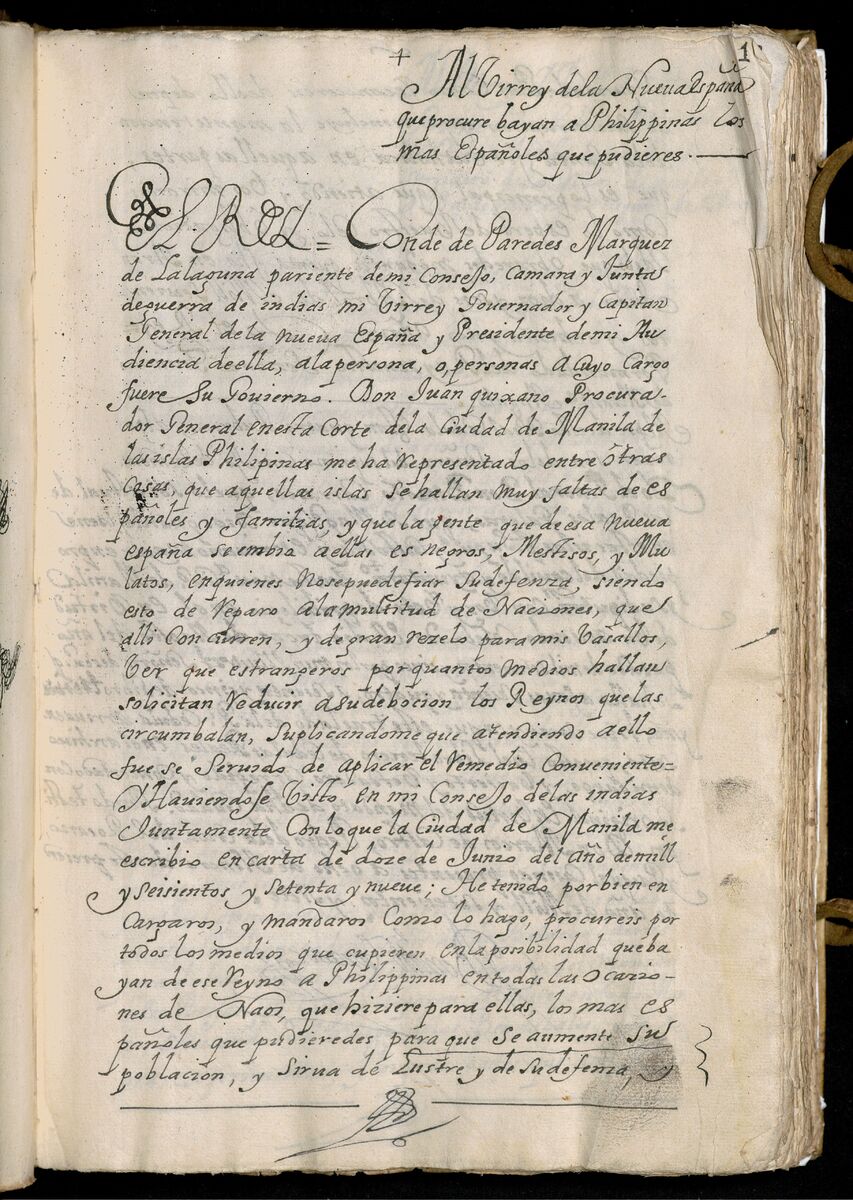 1
+
Al Virrey dela Nueva España
que procure bayan a Philippinas los
mas Españoles que pudieres.
EL REY = Conde de Paredes Marquez
de Lalaguna pariente demi Consejo, Camara y Juntas
deguerra de indias mi Virrey Governador y Capitan
General dela nueva España y Presidente demi Au
diencia deella, ala persona, o, personas a Cuyo Cargo
fuere Su Govierno. Don Juan quixano Procura-
dor General enesta Corte dela Ciudad de Manila de
las islas Philipinas me ha representado entre ôtras
Cosas, que aquellas islas Se hallan muy faltas de es
pañoles y familias, y que la gente que de esa nueva
españa se embia aellas es negros, Mestisos, y Mu
latos, en quienes Nosepuedefiar Sudefenza, siendo
esto de reparo ala multitud de Naciones, que
alli Concurren, y de gran rezelo para mis Vasallos,
Ver que estrangeros por quantos medios hallan
solicitan reducir a sudebocion los Reynos que las
circumbalan, Suplicandome que atendiendo a ello
fue se Servido de aplicar el remedio Conveniente=
Y Haviendose Visto en mi Consejo delas indias
Juntamente Conlo que la Ciudad de Manila me
escribio en carta de doze de Junio del año demill
y seisientos y setenta y nueve; He tenido por bien en
Cargaros, y mandaros Como lo hago, procureis por
todos los medios que cupieren en la posibilidad que ba
yan de ese Reyno a Philippinas en todas las Ocazio-
nes de Naos, que hiziere para ellas, los mas es
pañoles que pudieredes para que se aumente su
poblacion, y Sirua de Lustre y de sudefenza, y